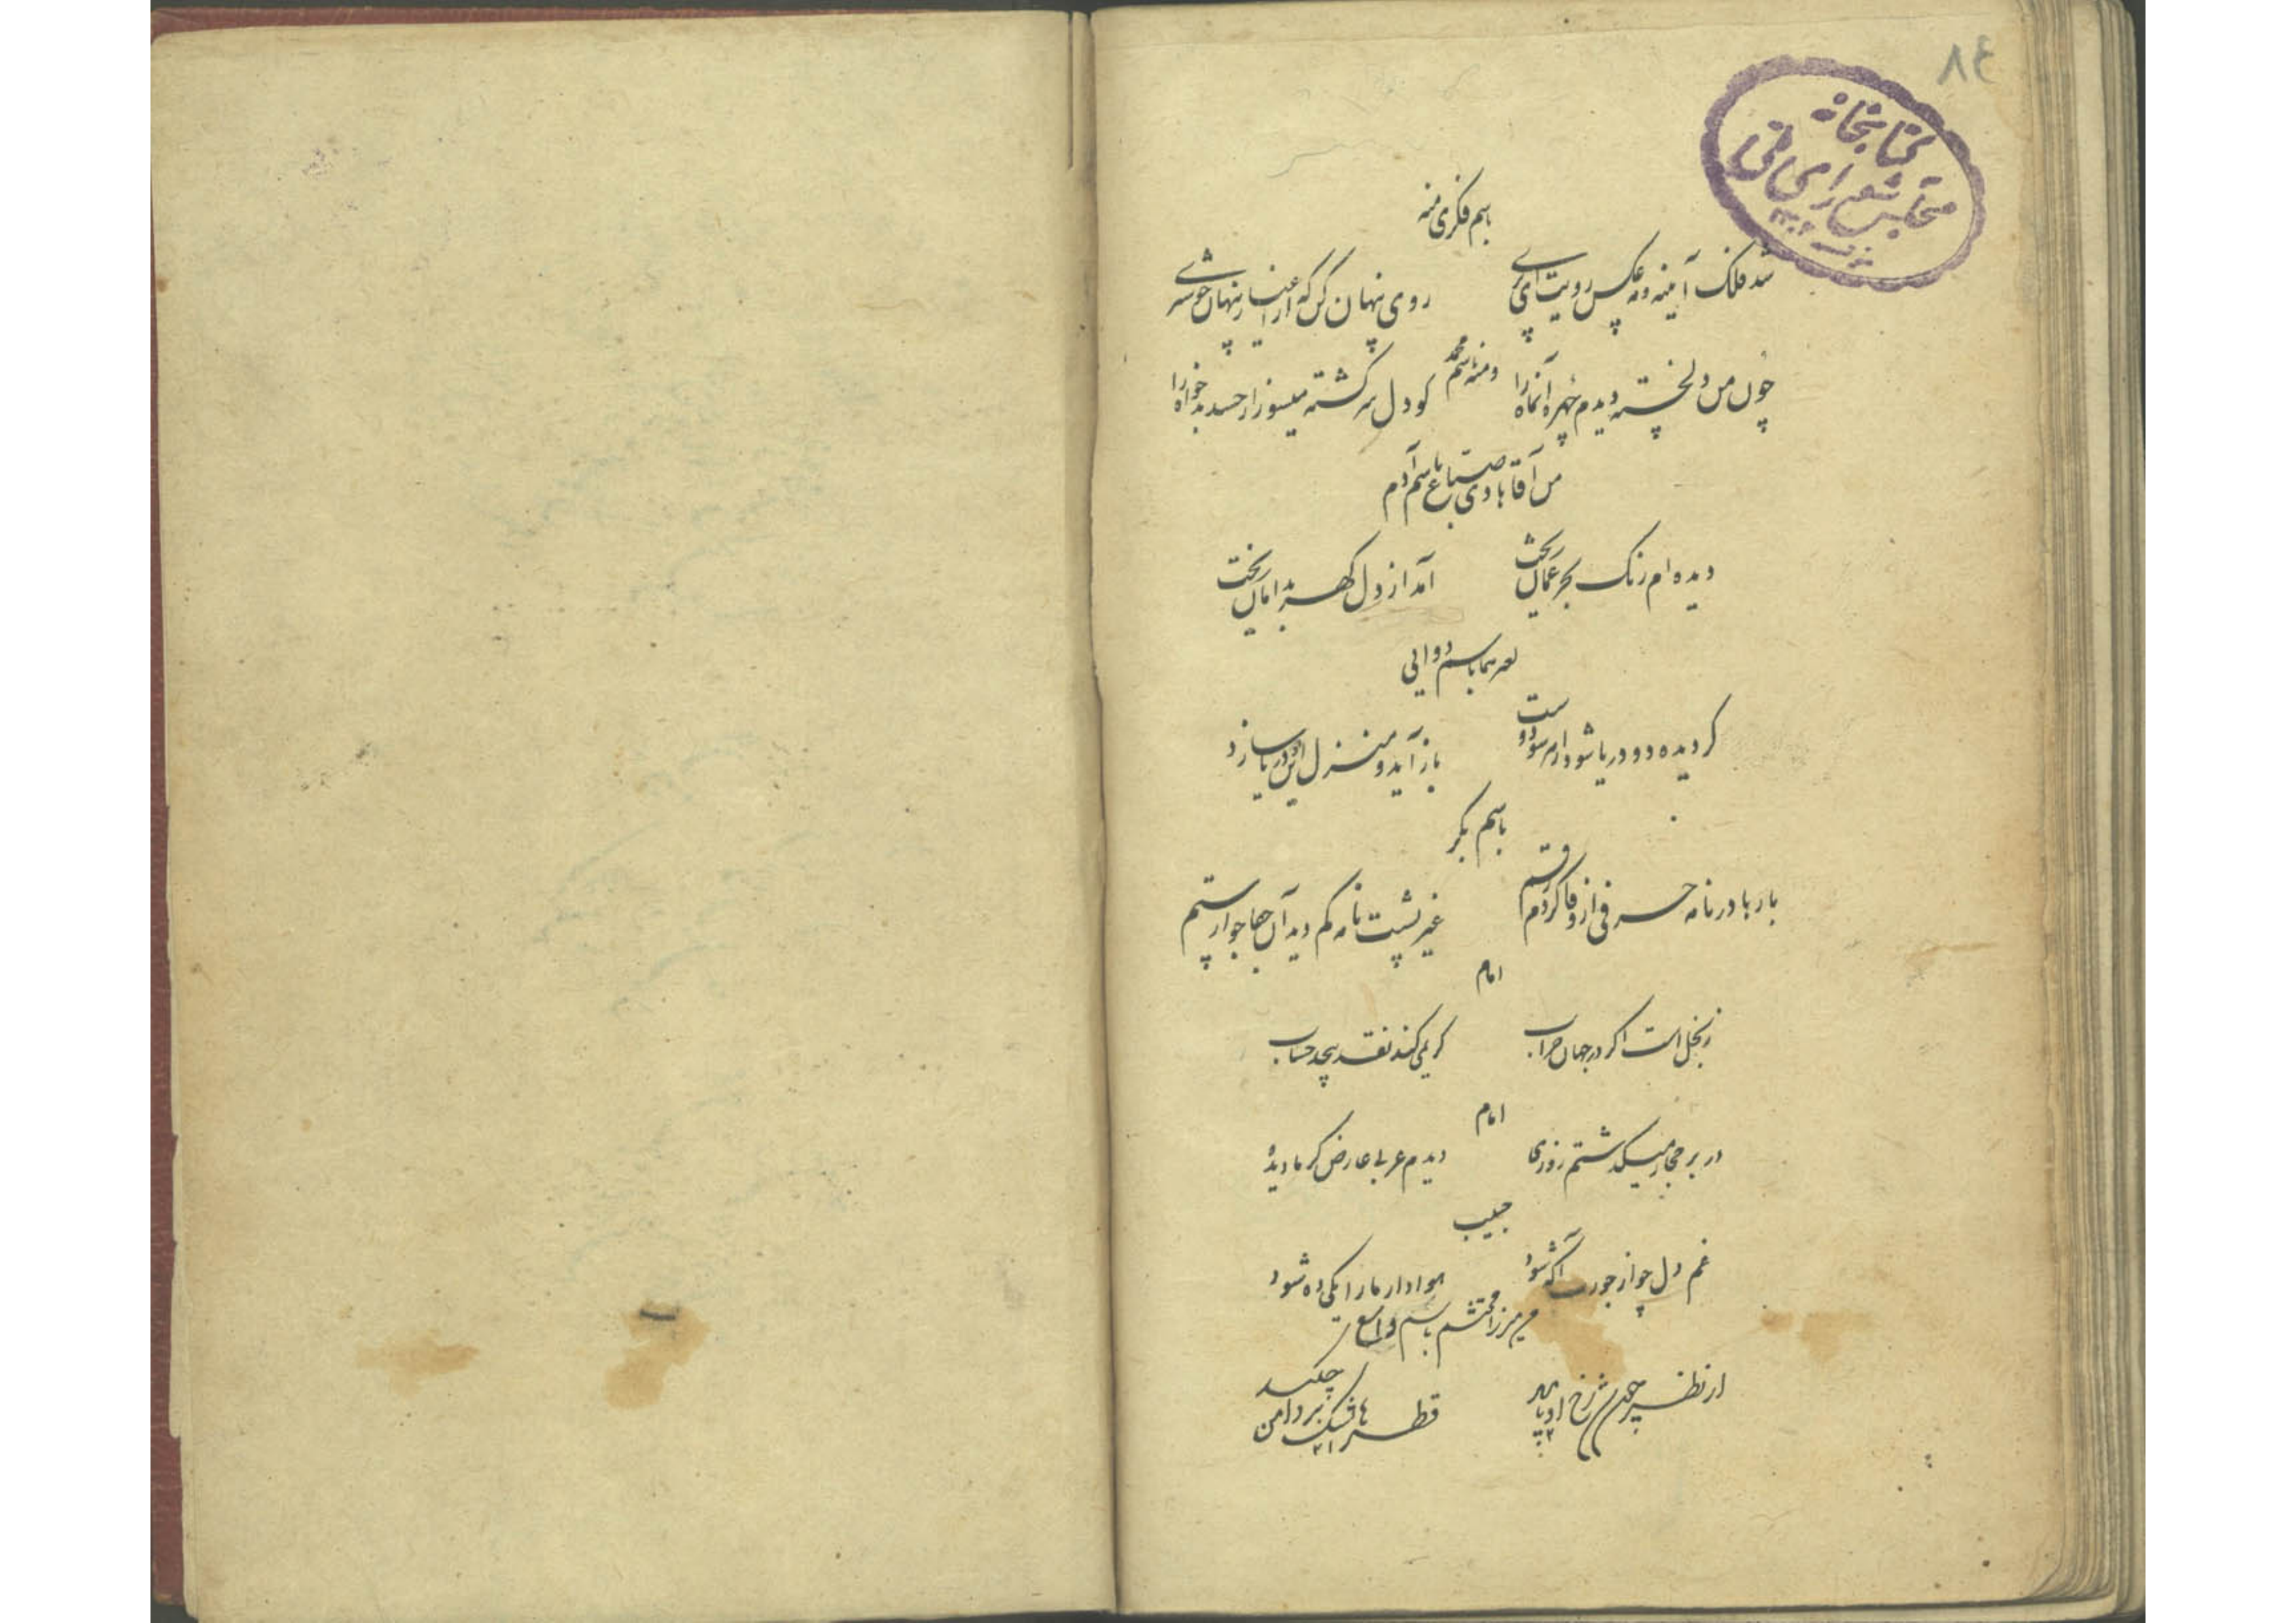 ۸٤
کتابخانه
مجلس شورای ملی
باسم فکری منه
شد فلک آینه و مه عکس رویت ای پری
روی پنهان کن که از اغیار پنهان خوشتری
ومنه باسم محمد
چون من دلخسته دیدم چهره آنماه را
کو دل سرگشته میسوز از حسد بدخواه را
من آقا هادی صباغ باسم آدم
دیده ام رنگ بحر عمان ریخت
آمد از دل گهر بدامان ریخت
باسم دوایی
کر دیده دو دریا شود ارم سود دوست
باز آید و منزل این دریا سازد
باسم بکر
بارها در نامه حرفی از وفا کردم رقم
غیر پشت نامه کم دید آن جفاجو از ستم
امام
ز بخل است اگر در جهان خراب
کریمی کند نقد بیحد حساب
امام
در بر حجاز میکذشتم روزی
دیدم عربی عارض کرما دیدهٔ
حبیب
غم دل چو از جورت آکه شود
هوادار ما را یکی ده شود
من میرزا محتشم باسم
از نظر چون شد رخ او
قطرهای اشک بر دامن چکید